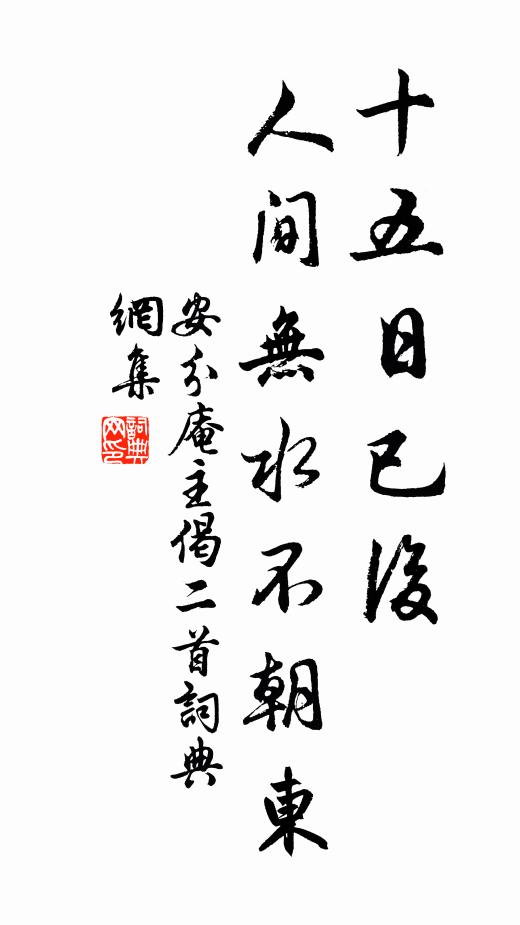 十五日已後
人間無水不朝東
安分庵主偈二首詞典
網集
詞典
网印